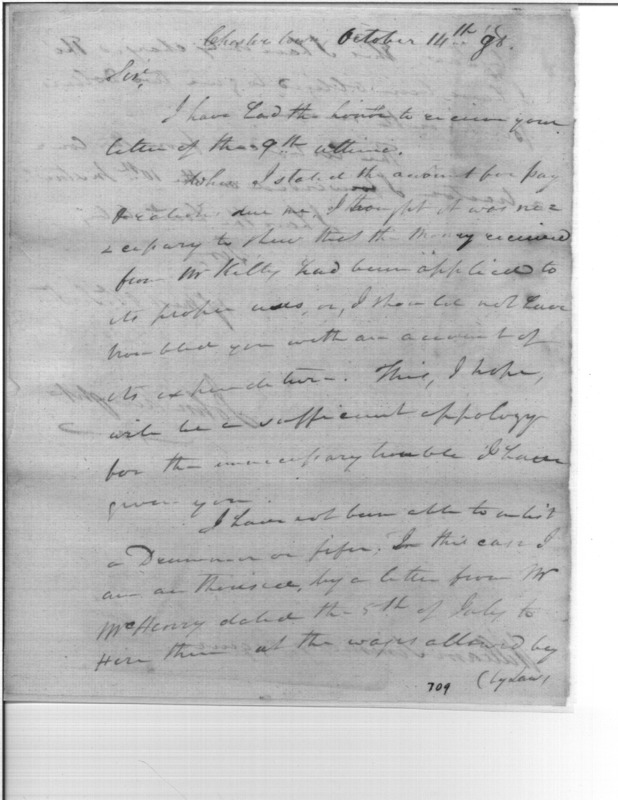 Chester town October 14th 98.
Sir,
I have had the honor to receive your
letter of the 9th ultimo.
When I stated the account for pay
& rations due me, I thought it was ne=
=cessary to shew that the Money received
from Mr Kelly had been applied to
its proper uses, or, I should not have
troubled you with an account of
its expenditure. This, I hope,
will be a sufficient appology
for the unnecessary trouble I have
given you.
I have not been able to enlist
a Drummer or fifer. In this case I
am authorised, by a letter from Mr
McHenry dated the 5th of July to
Hire them at the wages allowed by
(by Law)
709